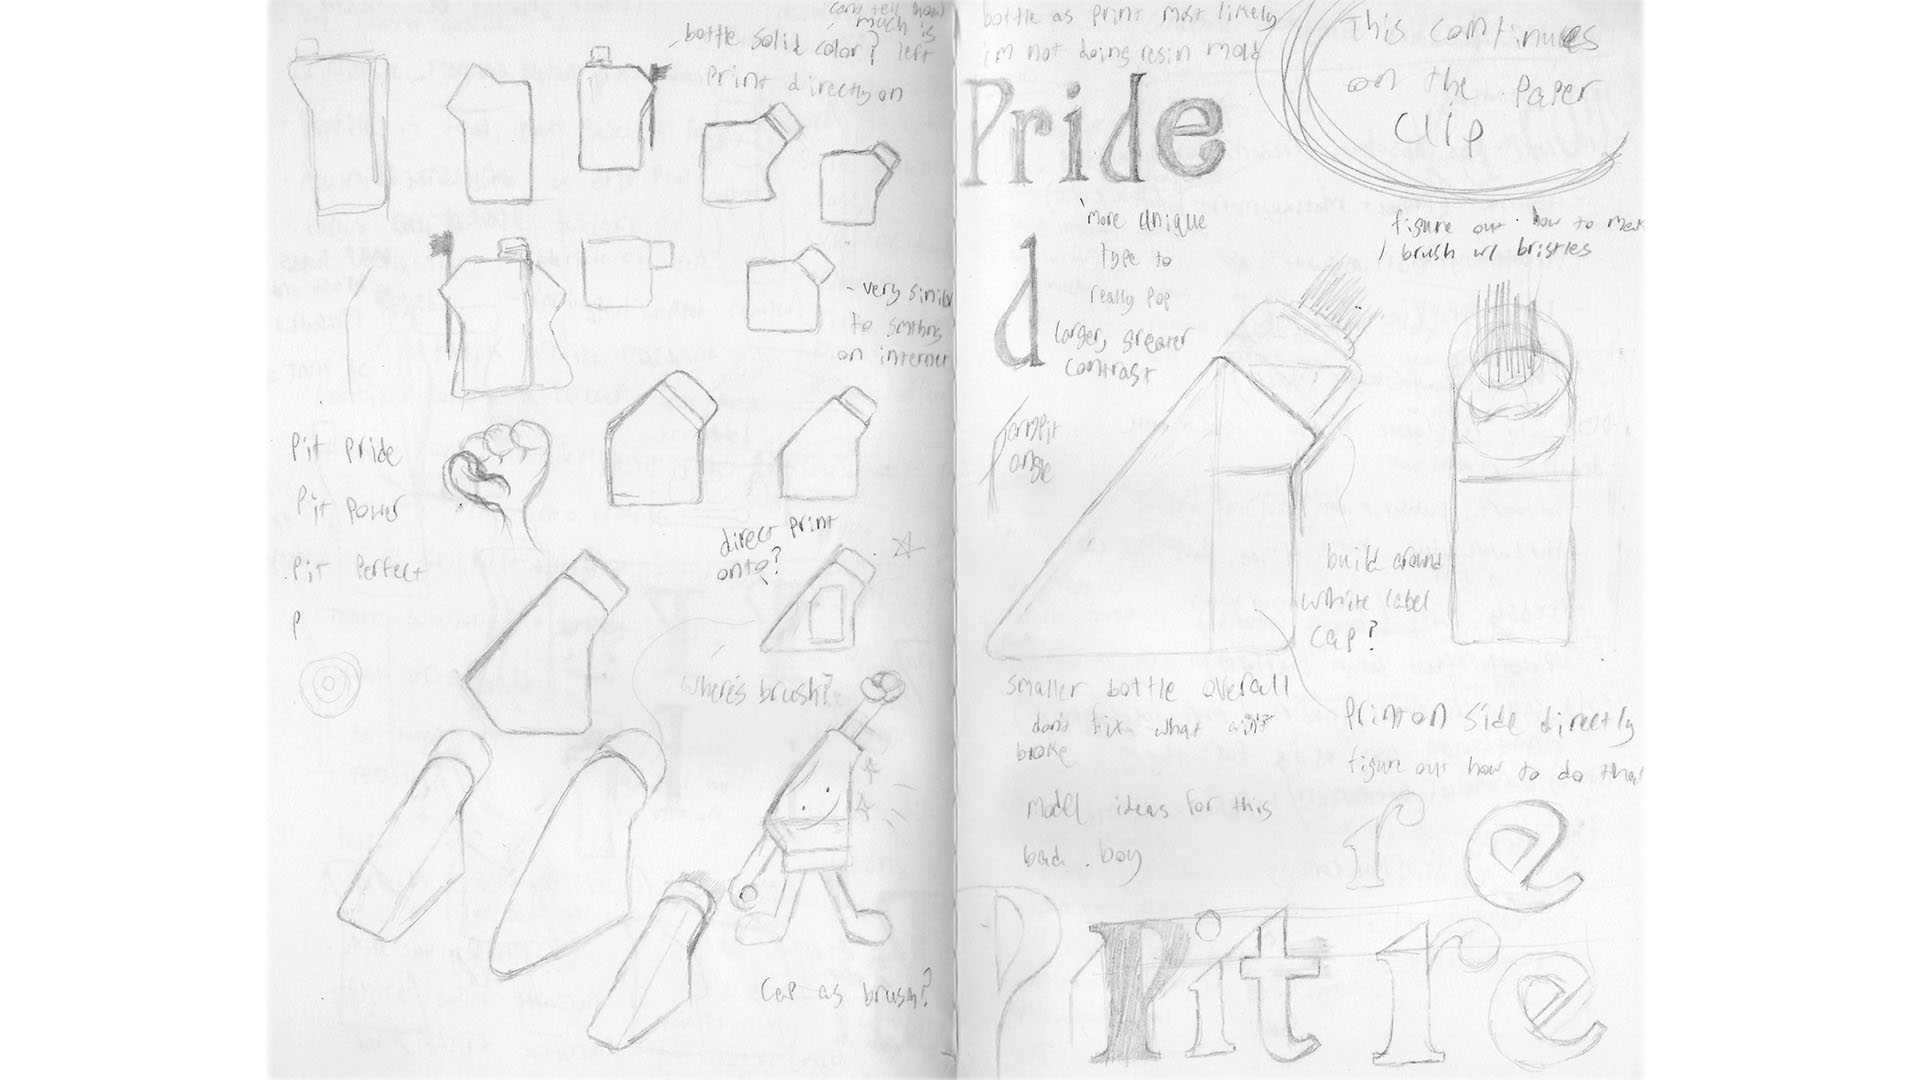 can't tell how
much is
left
bottle solid color?
print directly on
- very similar
to smthng
on internet
Pit Pride
Pit Power
Pit Perfect
P
direct print
onto?
where's brush?
cap as brush?
bottle as print most likely
im not doing resin mold
This continues
on the paper
clip
Pride
more unique
type to
really pop
larger, greater
contrast
d
figure out how to make
brush w/ bristles
armpit
angle
build around
white label
cap?
smaller bottle overall
don't fix what ain't
broke
print on side directly
figure out how to do that
model ideas for this
bad boy
r e
P
Pit re